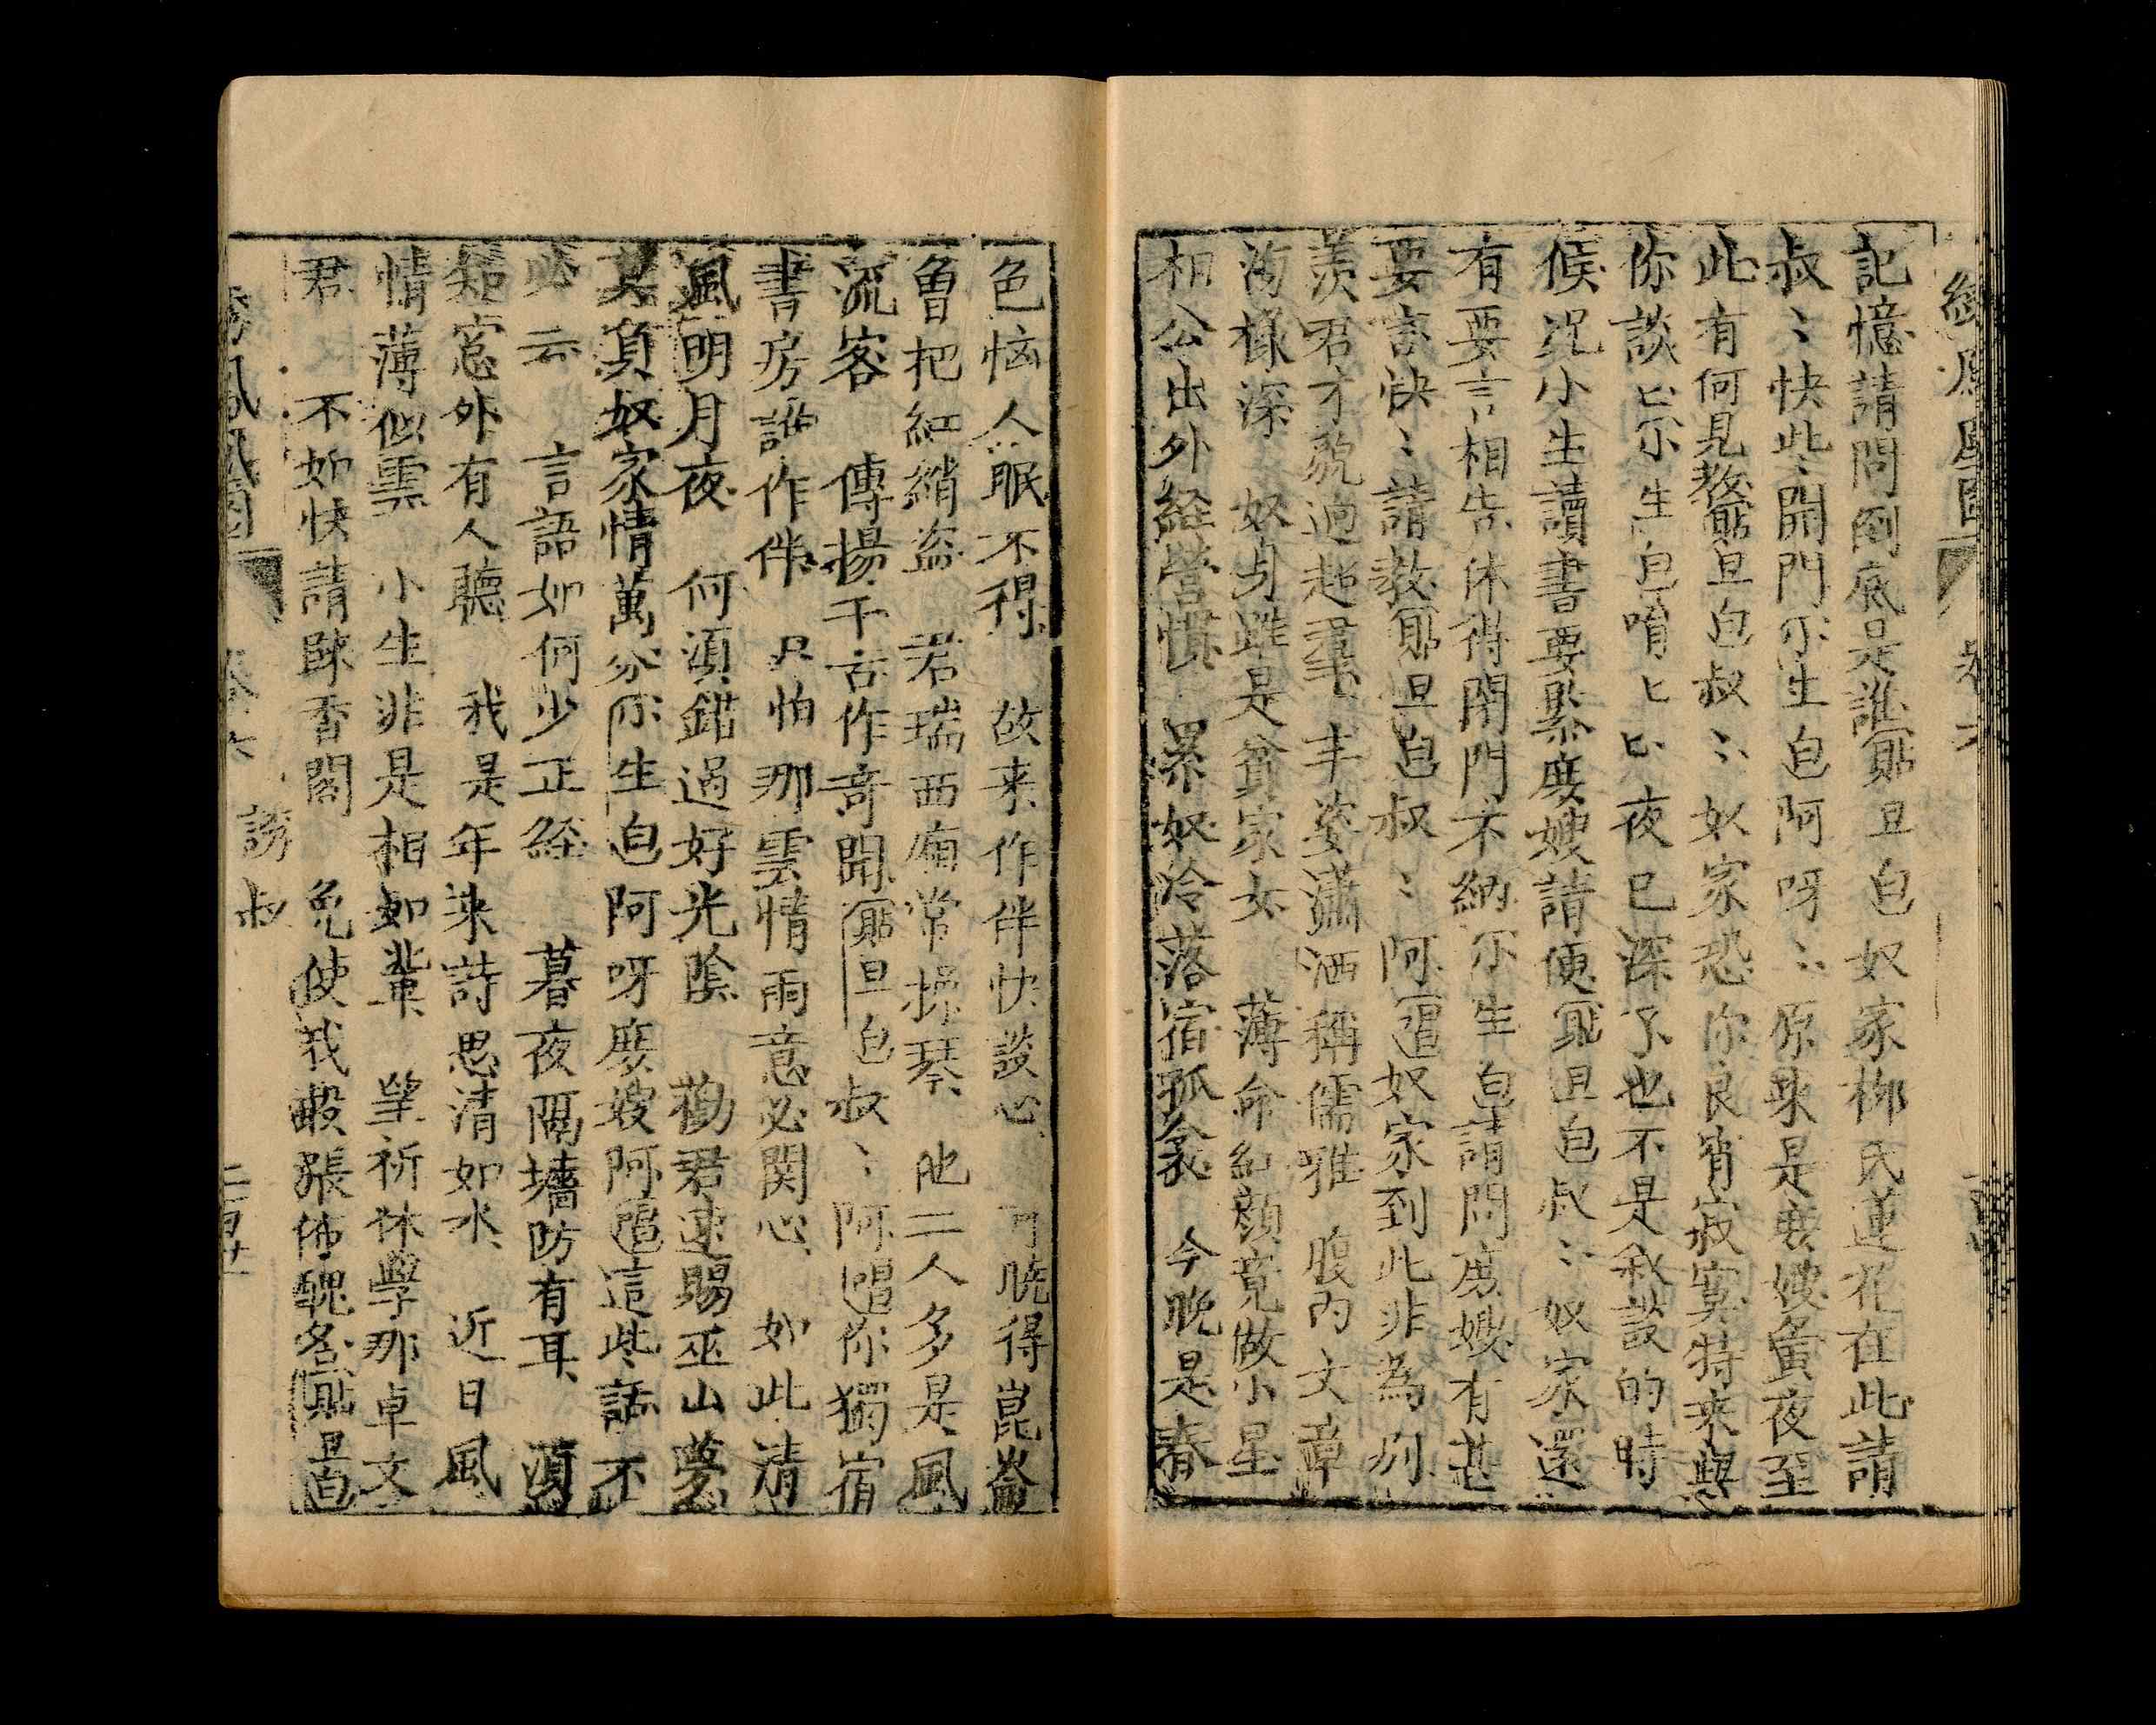 記憶請問到底是誰貼旦白奴家柳氏蓮花在此請
叔〻快些開門小生白阿呀〻原來是庶嫂夤夜至
此有何見教貼旦白叔〻奴家恐你良宵寂寞特來與
你談〻小生白唷〻〻夜已深了也不是我談的時
候况小生讀書要緊庶嫂請便貼旦白叔〻奴家還
有要言相告休得閉門不納小生白請問庶嫂有甚
要言快〻請教貼旦白叔〻阿唱奴家到此非為別
羨君才貌逈超羣 丰姿瀟洒稱儒雅 腹內文章
海樣深 奴身雖是貧家女 薄命紅顏竟做小星
相公出外経營慣 累奴冷落宿孤衾 今晚是春
色恼人眠不得 故来作伴快談心 可曉得崑崙
曾把紅綃盗 君瑞西廂常操琴 他二人多是風
流客 傳揚千古作奇聞貼旦白叔〻阿唱你獨宿
書房誰作伴 只怕那雲情雨意必関心 如此清
風明月夜 何須錯過好光陰 勸君速賜巫山夢
莫負奴家情萬分小生白阿呀庶嫂阿唱這些話不
必云 言語如何少正経 暮夜隔墻防有耳 須
知窓外有人聽 我是年來詩思清如水 近日風
情薄似雲 小生非是相如輩 望祈休學那卓文
君 不如快請歸香閣 免使我報張佈醜名貼旦白
誘叔